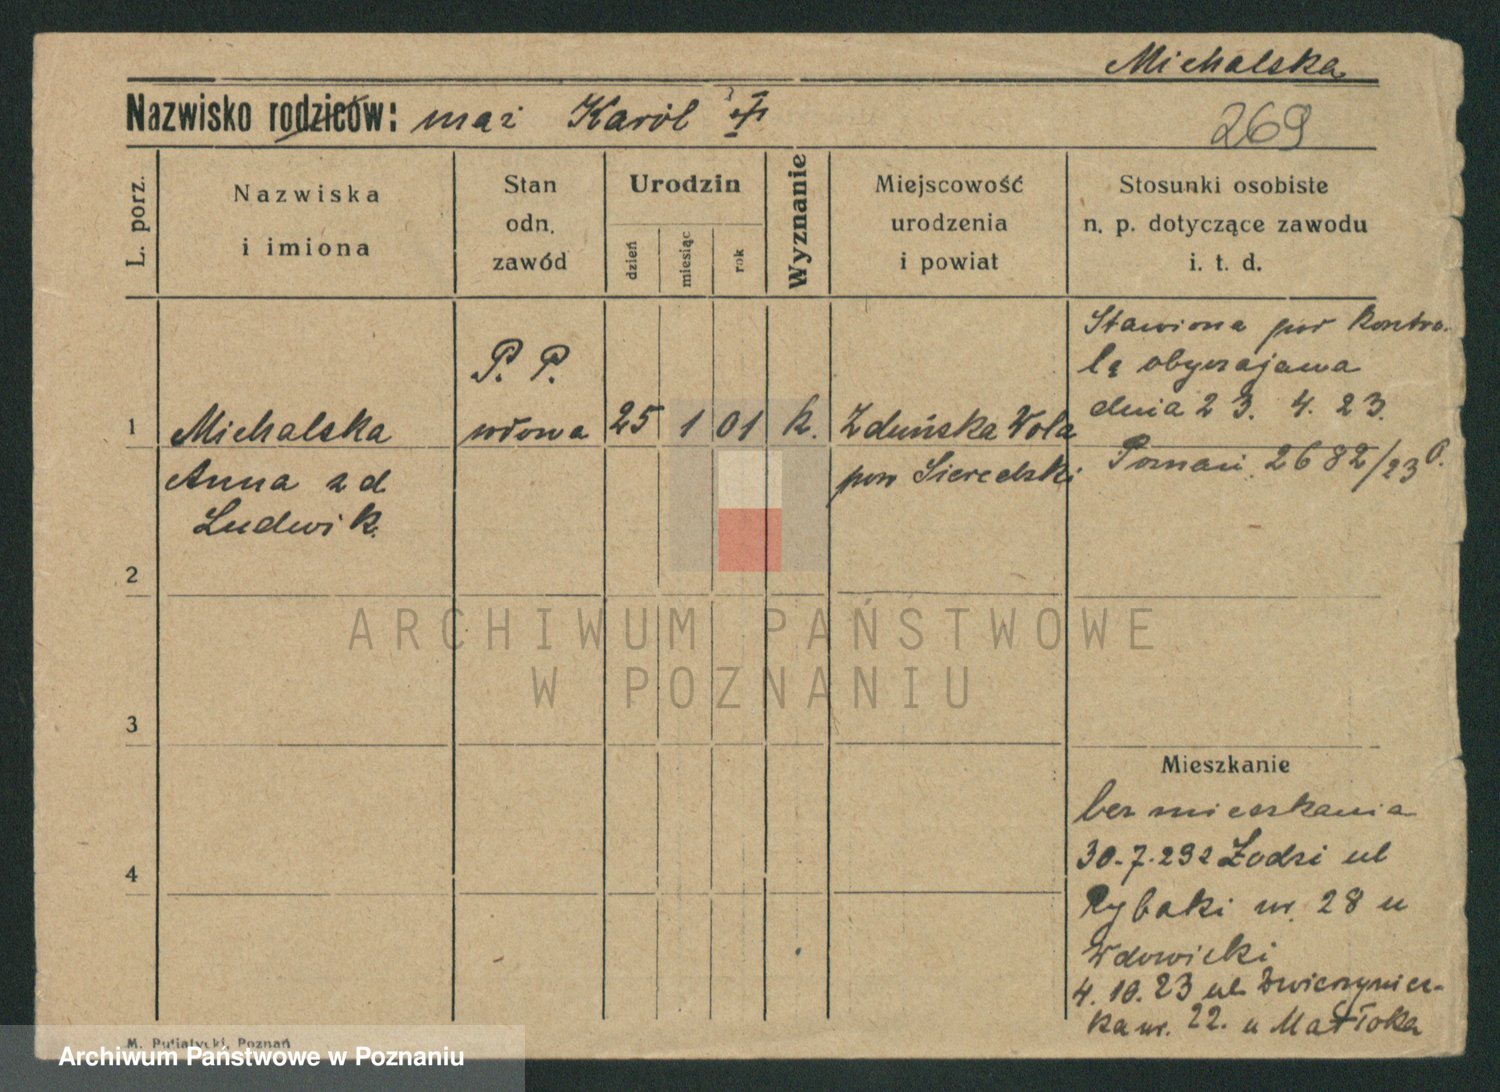 Michalska
Nazwisko rodziców: mąż Karól
269
L. porz.
Nazwiska
i imiona
Stan
odn.
zawód
Urodzin
dzień
miesiąc
rok
Wyznanie
Miejscowość
urodzenia
i powiat
Stosunki osobiste
n. p. dotyczące zawodu
i. t. d.
1
Michalska
Anna z d
Ludwik.
P. P.
wdowa
25
1
01
k.
Zduńska Wola
pow Sieredzki
Stawiona pod kontro-
lą obyczajawa
dnia 23. 4. 23.
Poznań 2682/23
2
3
4
Mieszkanie
bez mieszkania
30.7.23 z Łodzi ul
Rybaki nr. 28 u
Wdowicki
4. 10. 23 ul Zwierzyniec-
ka nr. 22. u Matłoka
ARCHIWUM PAŃSTWOWE
W POZNANIU
M. Putiatycki, Poznań
Archiwum Państwowe w Poznaniu